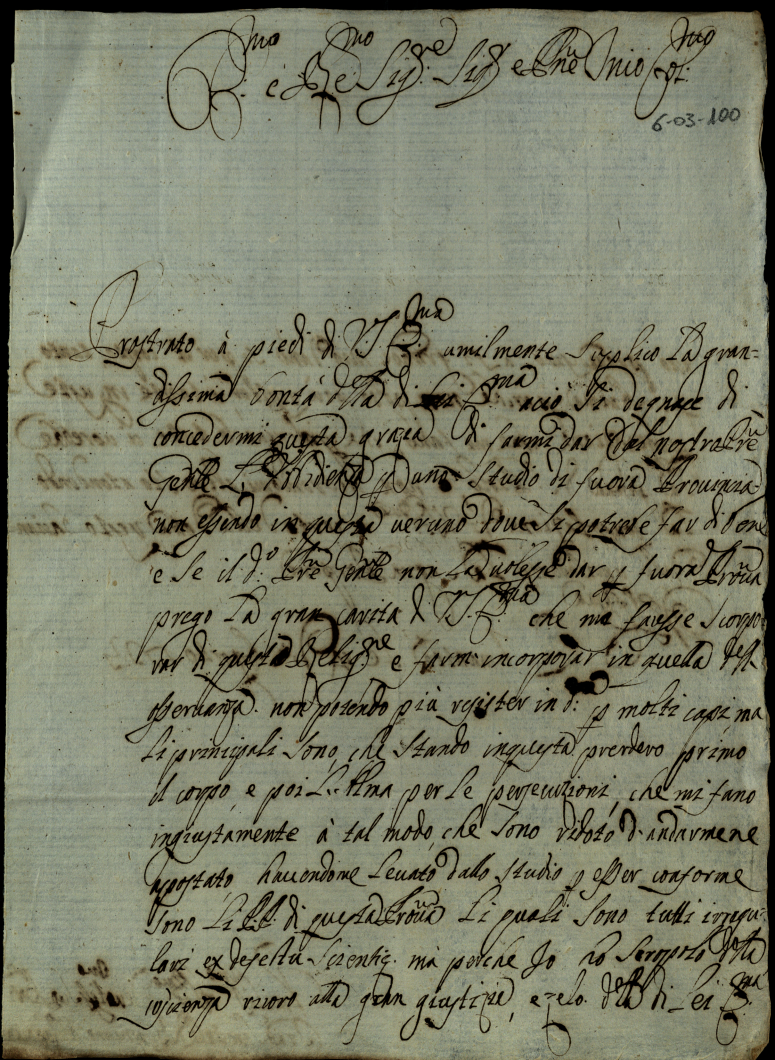 E.mo e R.mo Sig.re Sig.r e P.rne Pnio Col.mo
6-03-100
Prostrato à piedi di V.S. E.ma umilmente supplico la gran=
dissima bontà della di Lei E.ma acciò si degnase di
concedermi questa grazia di farmi dar dal nostro Pre
Gen.le L'Obidienza p uno Studio di fuora Provinzia
non essendo in questa veruno dove si potrebe far di bene
e se il d.o Pre Gen.le non la volesse dar p fuora Prova
prego la gran carita di V.S. E.ma che mi facesse scorpo
rar di questa Relig.ne e farmi incorporar in quella dell
osservanza. non potendo più resister in d.a p molti capi, ma
li principali sono, che stando in questa prerdero primo
il corpo, e poi L'Alma per le persecuzioni, che mi fano
ingiustamente à tal modo, che sono ridoto d'andarmene
apostato, havendome levato dallo studio p esser conforme
sono li PP. di questa Prova li quali sono tutti irregu=
lari ex defectu scientię. mà perche Io hò scropolo della
coscienza ricoro alla gran giustizie, e zelo della di Lei E.ma